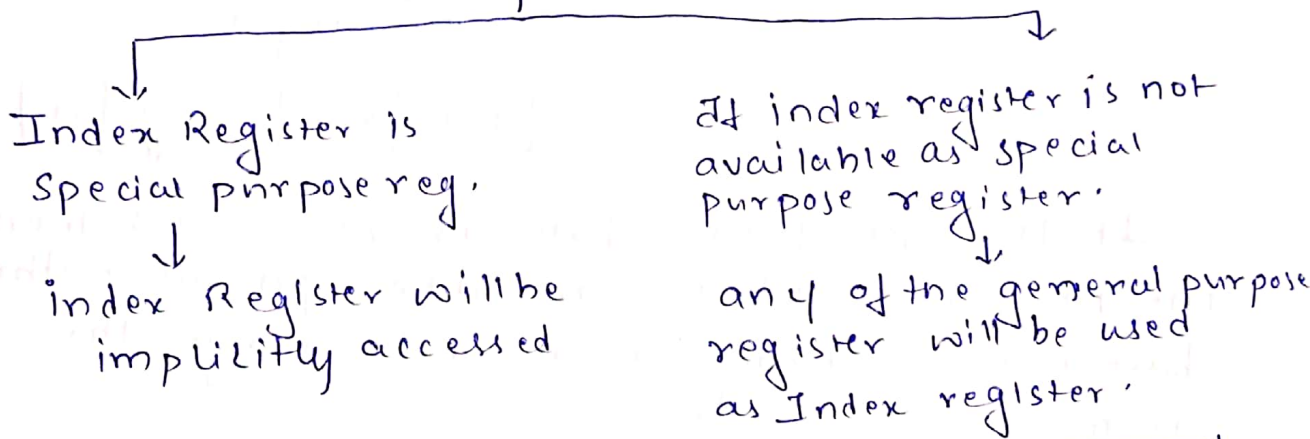 Index Register is
special purpose reg.
↓
index Register will be
implicitly accessed
If index register is not
available as special
purpose register.
↓
any of the general purpose
register will be used
as Index register.